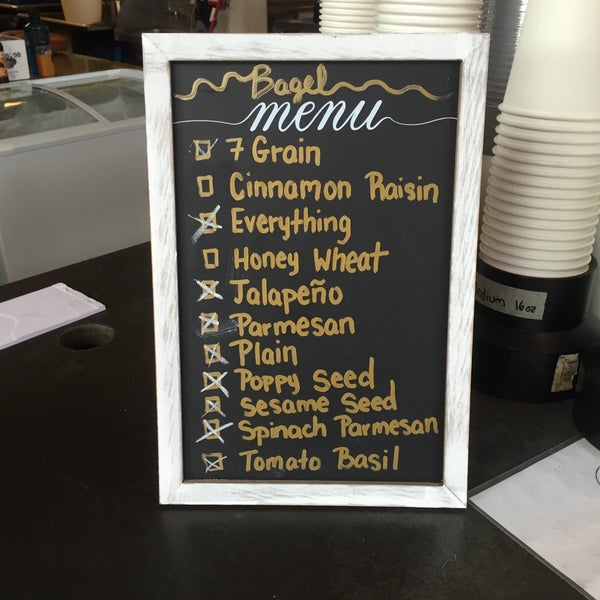 Bagel
menu
7 Grain
Cinnamon Raisin
Everything
Honey Wheat
Jalapeño
Parmesan
Plain
Poppy Seed
Sesame Seed
Spinach Parmesan
Tomato Basil
edium 16oz